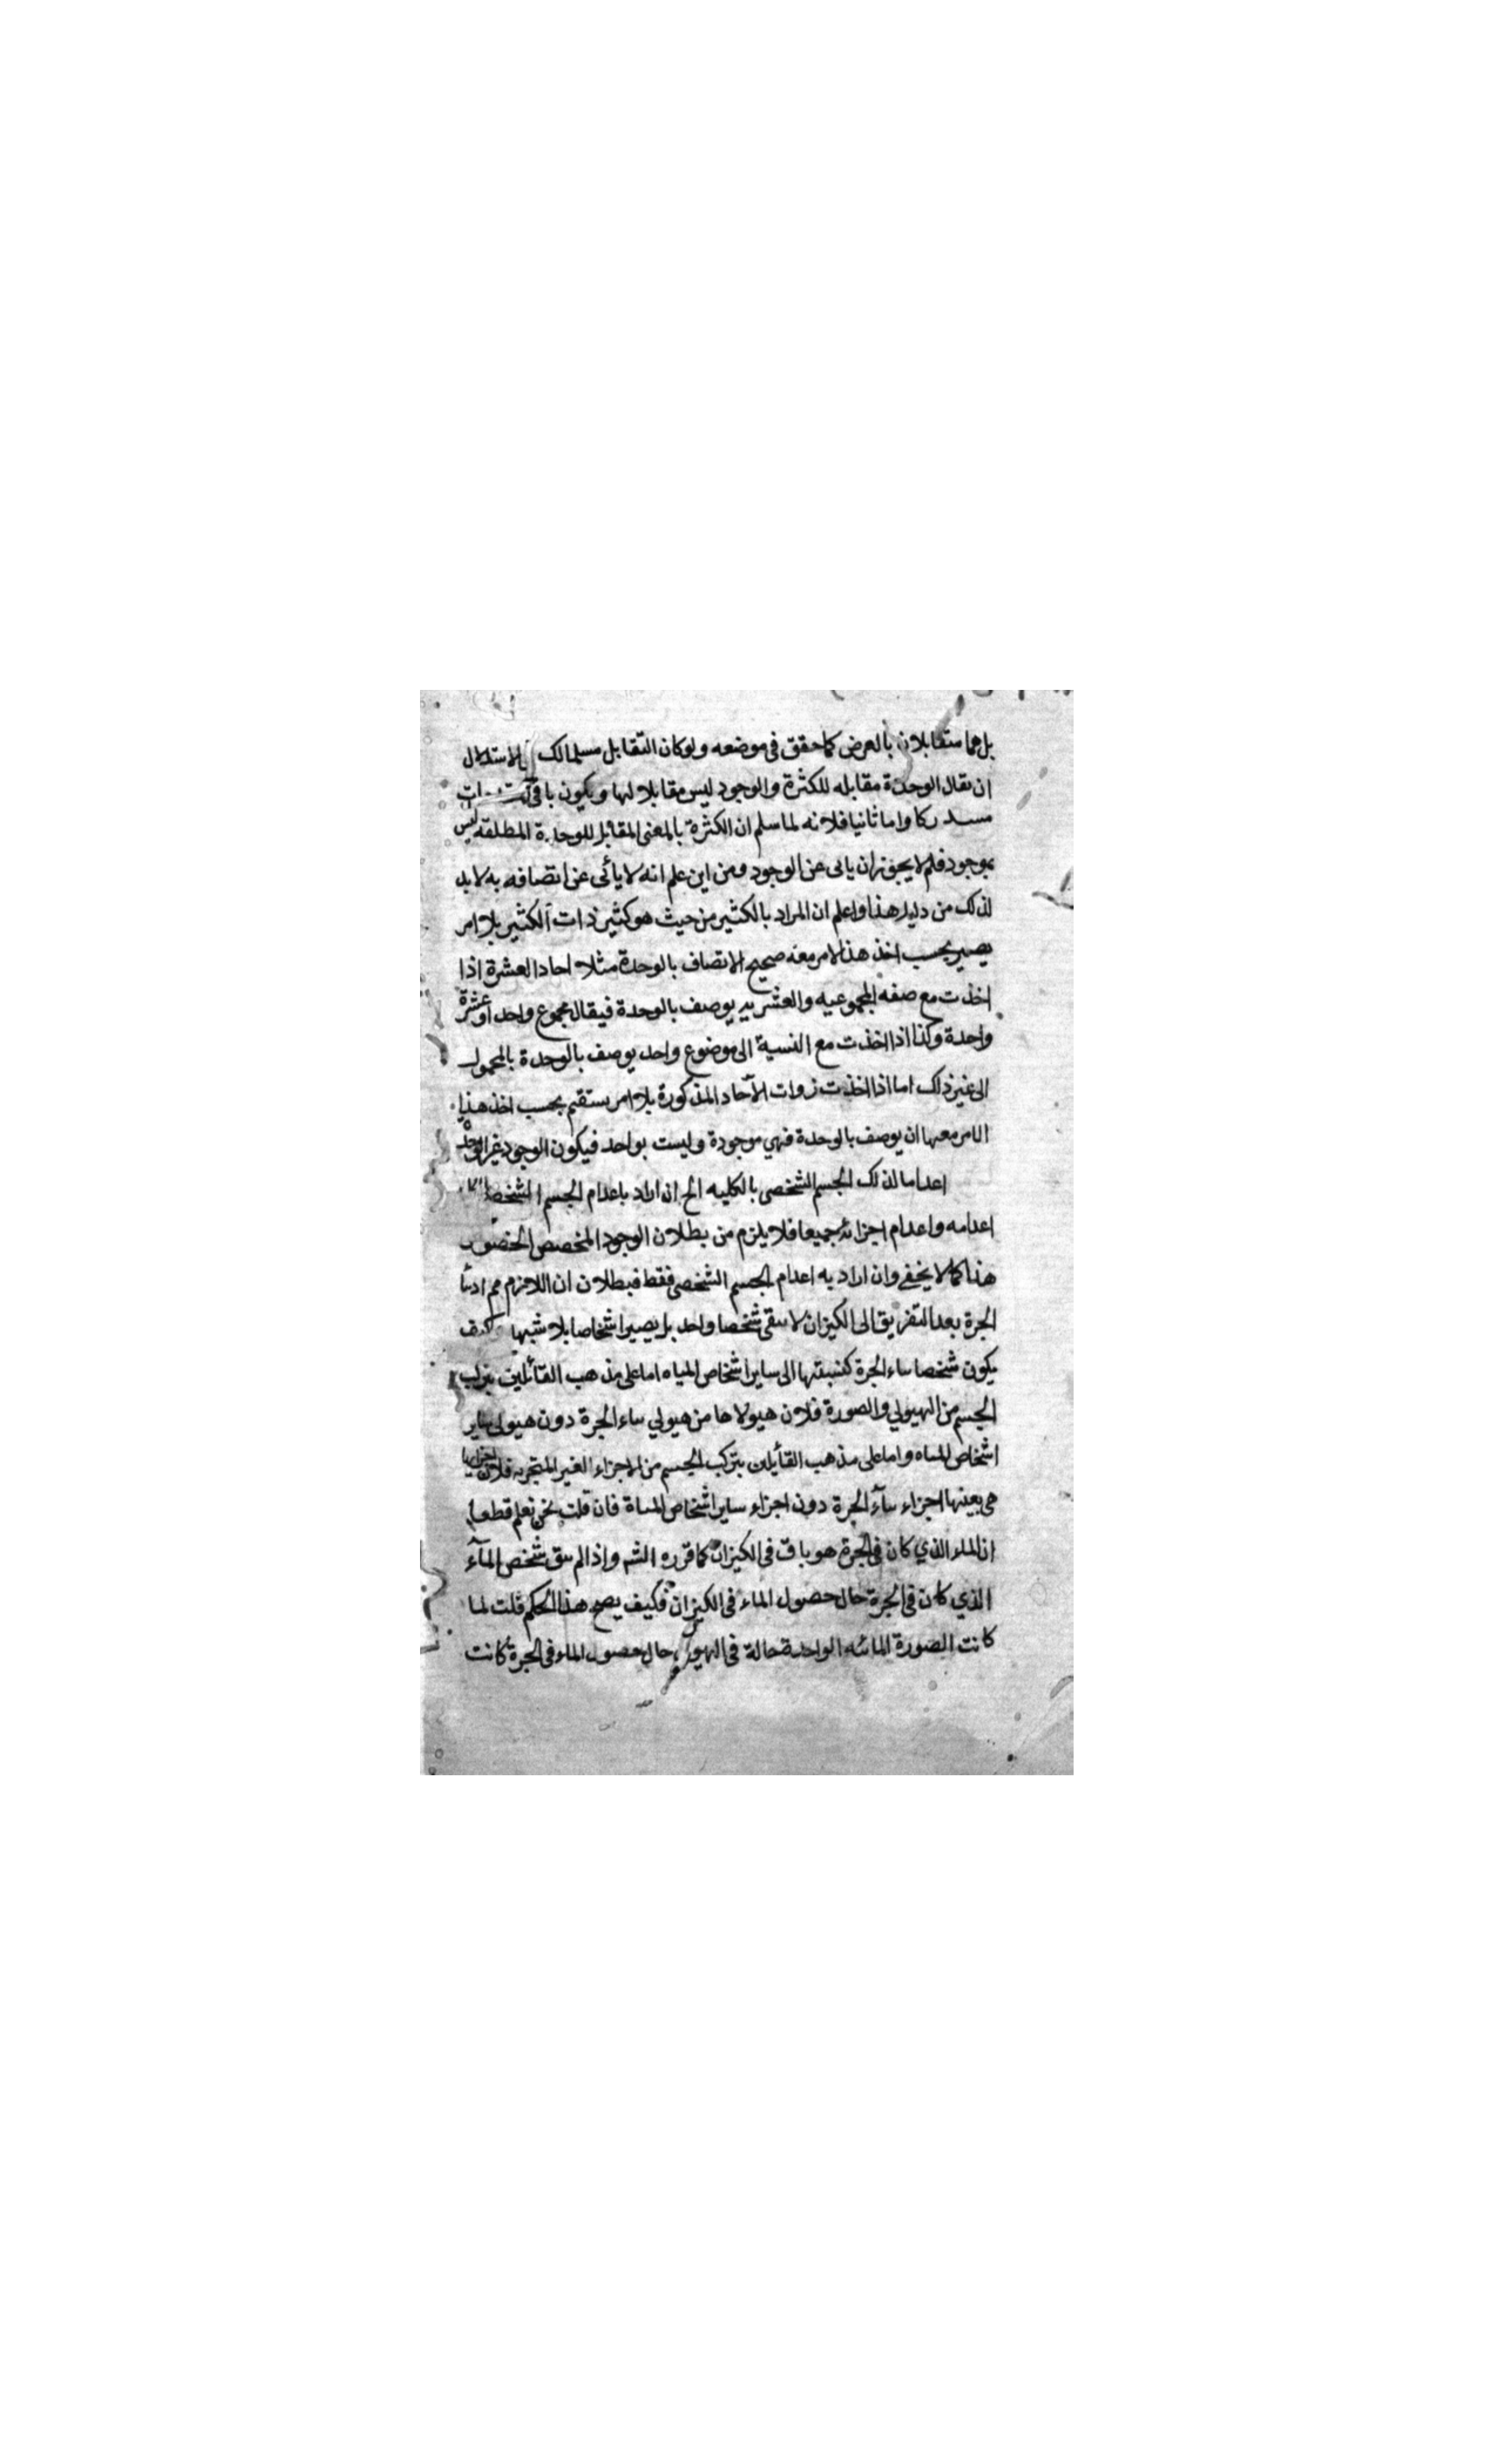 بل هما متقابلان بالعرض كما حقق في موضعه ولو كان التقابل مسلما لك الاستدلال
ان يقال الوحدة مقابله للكثرة والوجود ليس مقابلا لها ويكون باقي
مستدركا واما ثانيا فلانه لما سلم ان الكثرة بالمعنى المقابل للوحدة المطلقة ليس
بموجود فلم لا يجوز ان يابى عن الوجود ومن اين علم انه لا يأبى عن اتصافه به لا بد
لذلك من دليل هذا واعلم ان المراد بالكثير من حيث هو كثير ذات الكثير بلا امر
يصير بحسب اخذ هذا الامر معه صحيح الاتصاف بالوحدة مثلا احاد العشرة اذا
اخذت مع صفه المجموعيه والعشريه يوصف بالوحدة فيقال مجموع واحد او عشرة
واحدة وكذا اذا اخذت مع النسبة الى موضوع واحد يوصف بالوحدة بالمحمول
الى غير ذلك اما اذا اخذت ذوات الآحاد المذكورة بلا امر يستقيم بحسب اخذ هذا
الامر معها ان يوصف بالوحدة فهي موجودة وليست بواحد فيكون الوجود غير الوحدة
اعداما لذلك الجسم الشخصي بالكليه الخ ان اراد باعدام الجسم الشخصي
اعدامه واعدام اجزائه جميعا فلا يلزم من بطلان الوجود المخصص الخصوص
هذا كما لا يخفى وان اراد به اعدام الجسم الشخصي فقط فبطلان اللازم مم
الجرة بعد التفريق الى الكيزان لا يبقى شخصا واحد بل يصير اشخاصا بلا شبهة كيف
يكون شخصا ماء الجرة كنسبتها الى ساير اشخاص المياه اما على مذهب القائلين بتركب
الجسم من الهيولي والصورة فلان هيولاها من هيولي ماء الجرة دون هيولي ساير
اشخاص المياه واما على مذهب القائلين بتركب الجسم من الاجزاء الغير المتجزيه فلان اجزاءها
هي بعينها اجزاء ماء الجرة دون اجزاء ساير اشخاص المياة فان قلت نحن نعلم قطعا
ان الماء الذي كان في الجرة هو باق في الكيزان كما قرره الشه واذا لم يبق شخص المآء
الذي كان في الجرة حال حصول الماء في الكيزان فكيف يصح هذا الحكم قلت لما
كانت الصورة المائيه الواحدة حالة في الهيولي حال حصول الماء في الجرة كانت